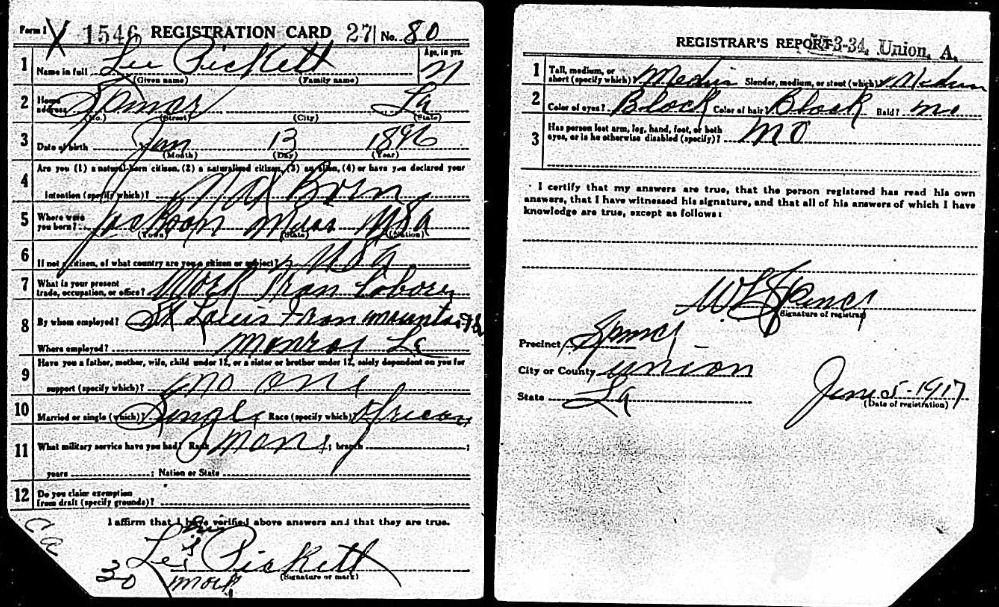 Form 1 X 1546 REGISTRATION CARD 27 No. 80
1 Name in full Lee Pickett 21
(Given name) (Family name) Age, in yrs.
2 Home address Spencer La
(No.) (Street) (City) (State)
3 Date of birth Jan 13 1896
(Month) (Day) (Year)
4 Are you (1) a natural-born citizen, (2) a naturalized citizen, (3) an alien, (4) or have you declared your
intention (specify which)? Nat Born
5 Where were you born? Jackson Miss USA
(Town) (State) (Nation)
6 If not a citizen, of what country are you a citizen or subject? USA
7 What is your present trade, occupation, or office? Work Tran Laborer
8 By whom employed? St Louis Iron mountain
Where employed? Monroe La
9 Have you a father, mother, wife, child under 12, or a sister or brother under 12, solely dependent on you for
support (specify which)? no one
10 Married or single (which)? Single Race (specify which)? African
11 What military service have you had? Rank none; branch
years; Nation or State
12 Do you claim exemption
from draft (specify grounds)?
I affirm that I have verified above answers and that they are true.
his
Lee x Pickett
(Signature or mark)
mark
30
Ca
REGISTRAR'S REPORT 3-34, Union, A.
1 Tall, medium, or short (specify which)? Medium Slender, medium, or stout (which)? Medium
2 Color of eyes? Black Color of hair? Black Bald? no
3 Has person lost arm, leg, hand, foot, or both
eyes, or is he otherwise disabled (specify)? no
I certify that my answers are true, that the person registered has read his own
answers, that I have witnessed his signature, and that all of his answers of which I have
knowledge are true, except as follows:
(Signature of registrar)
Precinct Spencer
City or County Union
State La
June 5-1917
(Date of registration)